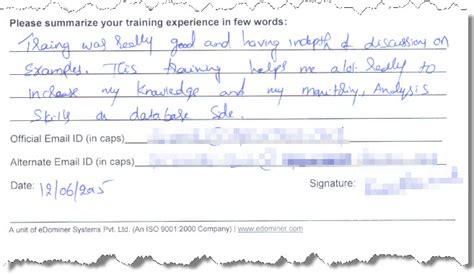 Please summarize your training experience in few words:
Traing was really good and having indepth of discussion on
Examples. This training helps me alot really to
increase my knowledge and my monitring, Analysis
Skills on database Side.
Official Email ID (in caps)
Alternate Email ID (in caps)
Date: 12/06/2015
Signature:
A unit of eDominer Systems Pvt. Ltd. (An ISO 9001:2000 Company) | www.edominer.com